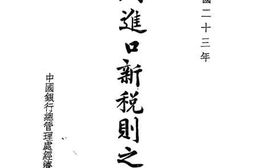 國二十三年
進口新税則之
中國銀行總管理處經濟